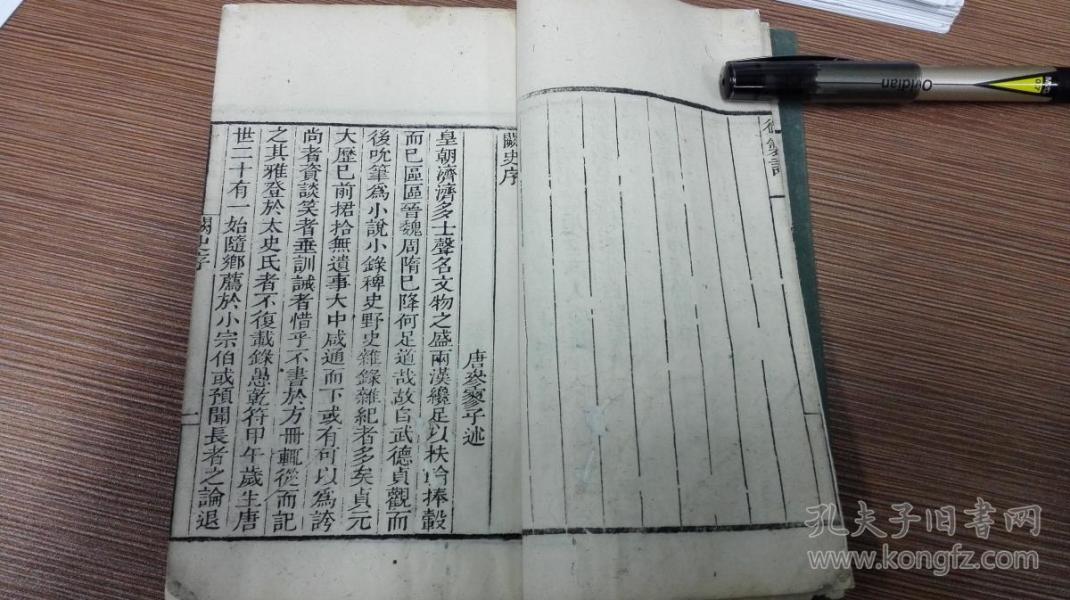 闕史序
唐參寥子述
皇朝濟濟多士聲名文物之盛兩漢纔足以扶輪捧轂
而已區區晉魏周隋已降何足道哉故自武德貞觀而
後吮筆爲小說小錄稗史野史雜錄雜紀者多矣貞元
大歷已前捃拾無遺事大中咸通而下或有可以爲誇
尚者資談笑者垂訓誡者惜乎不書於方冊輒從而記
之其雅登於太史氏者不復載錄愚乾符甲午歲生唐
世二十有一始隨鄉薦於小宗伯或預聞長者之論退
闕史序
一
Ovidian
07
孔夫子旧书网
www.kongfz.com